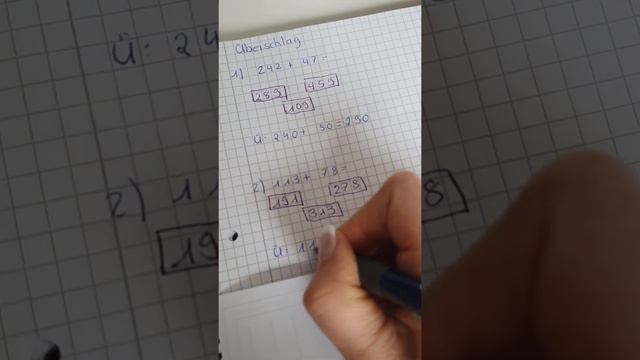 Überschlag
1) 242 + 47 =
289 459
109
Ü: 240 + 50 = 290
2) 113 + 78 =
191 278
313
Ü: 11